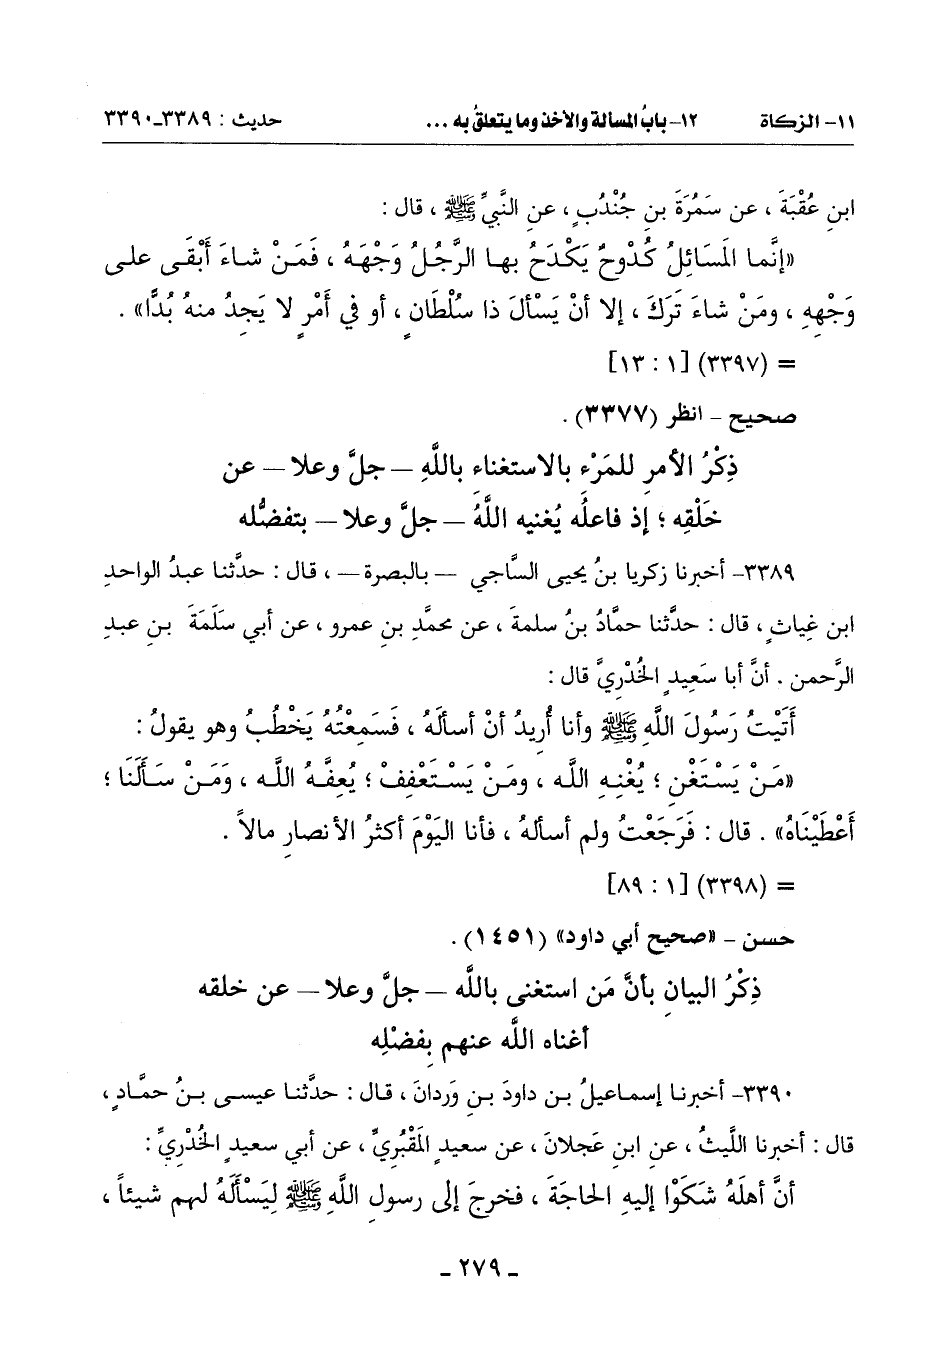 ١١- الزكاة ١٢- باب المسألة والأخذ وما يتعلق به ... حديث : ٣٣٨٩-٣٣٩٠
ابنِ عُقْبَةَ ، عن سَمُرَةَ بنِ جُنْدُبٍ ، عنِ النَّبيِّ ﷺ ، قال :
«إنَّما المَسَائِلُ كُدُوحٌ يَكْدَحُ بها الرَّجُلُ وَجْهَهُ ، فَمَنْ شاءَ أَبْقَى على
وَجْهِهِ ، ومَنْ شاءَ تَرَكَ ، إلا أنْ يَسْألَ ذا سُلْطَانٍ ، أو في أَمْرٍ لا يَجِدُ منهُ بُدًّا» .
= (٣٣٩٧) [١ : ١٣]
صحيح - انظر (٣٣٧٧) .
ذِكْرُ الأمرِ للمَرْءِ بالاستغناءِ باللَّهِ — جلَّ وعلا — عن
خَلْقِه ؛ إذ فاعلُه يُغنيه اللَّهُ — جلَّ وعلا — بتفضُّله
٣٣٨٩- أخبرنا زكريا بنُ يحيى السَّاجي — بالبصرة — ، قال : حدَّثنا عبدُ الواحدِ
ابن غِياثٍ ، قال : حدَّثنا حمَّادُ بنُ سلمةَ ، عن محمَّدِ بنِ عمرو ، عن أبي سَلَمَةَ بنِ عبدِ
الرَّحمن . أنَّ أبا سَعِيدٍ الخُدْرِيَّ قال :
أَتَيْتُ رَسُولَ اللَّهِ ﷺ وأنا أُريدُ أنْ أسألَهُ ، فَسَمِعْتُهُ يَخْطُبُ وهو يقولُ :
«مَنْ يَسْتَغْنِ ؛ يُغْنِهِ اللَّه ، ومَنْ يَسْتَعْفِفْ ؛ يُعِفَّهُ اللَّه ، وَمَنْ سَأَلَنَا ؛
أَعْطَيْنَاهُ» . قال : فَرَجَعْتُ ولم أسألهُ ، فأنا اليَوْمَ أكثرُ الأنصارِ مالاً .
= (٣٣٩٨) [١ : ٨٩]
حسن - «صحيح أبي داود» (١٤٥١) .
ذِكْرُ البيانِ بأنَّ مَن استغنى باللَّه — جلَّ وعلا — عن خلقه
أغناه اللَّه عنهم بفضْلِه
٣٣٩٠- أخبرنا إسماعيلُ بن داودَ بنِ وَردانَ ، قال : حدَّثنا عيسى بنُ حمَّادٍ ،
قال : أخبرنا اللَّيثُ ، عن ابنِ عَجلانَ ، عن سعيدٍ المَقْبُرِيِّ ، عن أبي سعيدٍ الخُدْرِيِّ :
أنَّ أهلَهُ شَكَوْا إليهِ الحاجَةَ ، فخرجَ إلى رسولِ اللَّهِ ﷺ لِيَسْأَلَهُ لهم شيئاً ،
- ٢٧٩ -